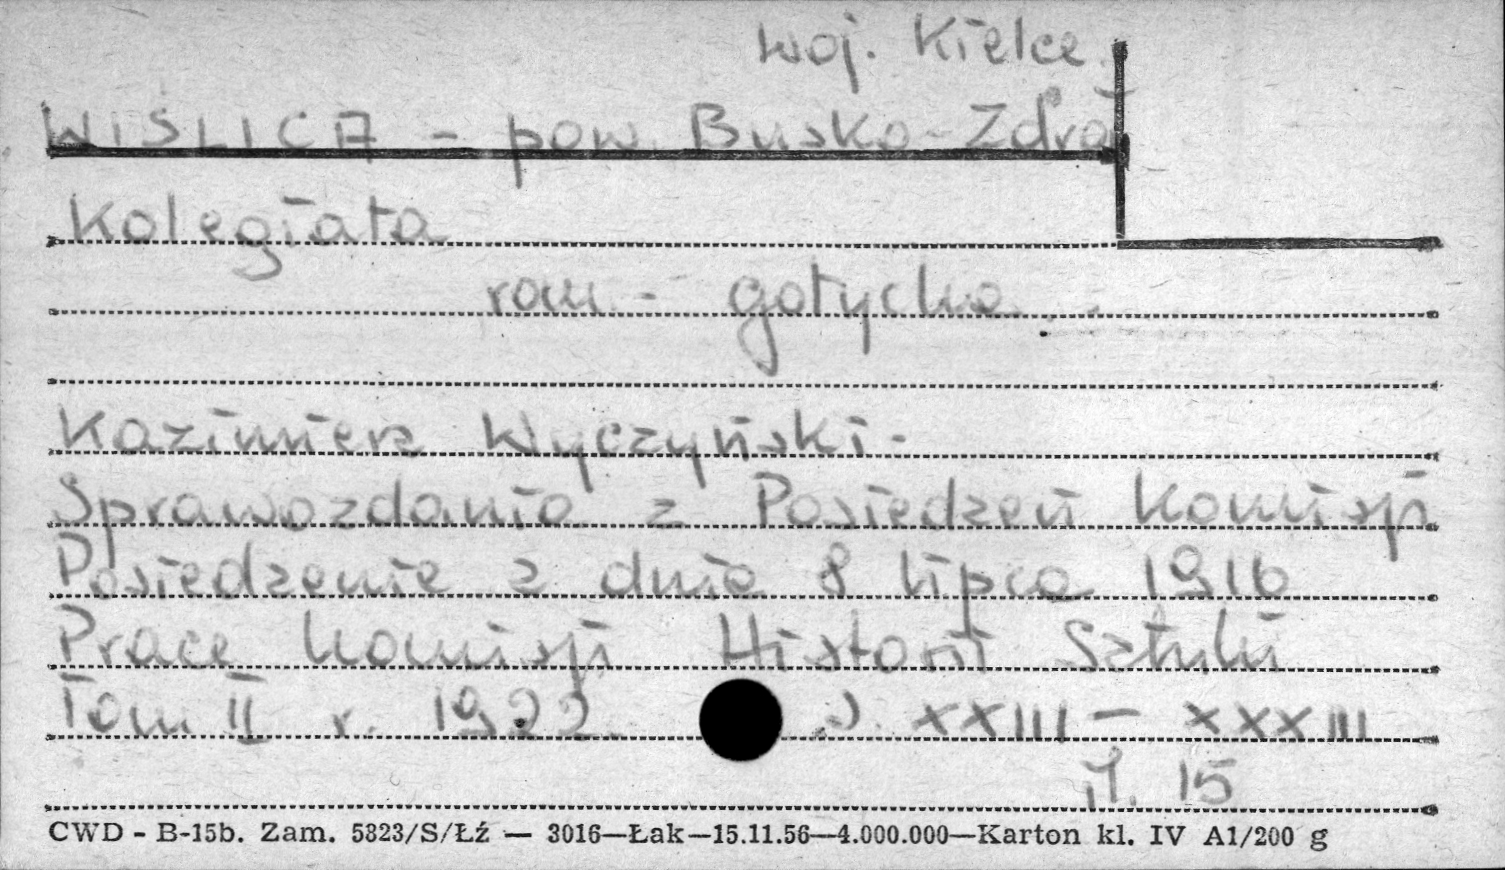 woj. Kielce
WIŚLICA - pow. Busko-Zdrój
Kolegiata
rom - gotycka
Kazimierz Wyczyński -
Sprawozdania z Posiedzeń Komisji
Posiedzenie z dnia 8 lipca 1916
Prace Komisji Historii Sztuki
Tom II r. 1922. s. XXIII - XXXIII
il. 15
CWD - B-15b. Zam. 5823/S/Łź — 3016—Łak—15.11.56—4.000.000—Karton kl. IV A1/200 g